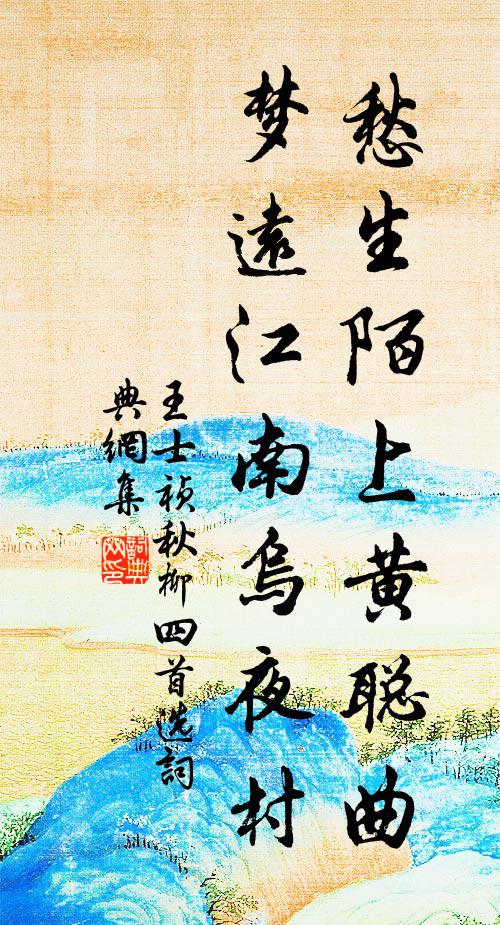 愁生陌上黄聪曲
梦遠江南烏夜村
王士祯秋柳四首选詞
典網集
詞典网印